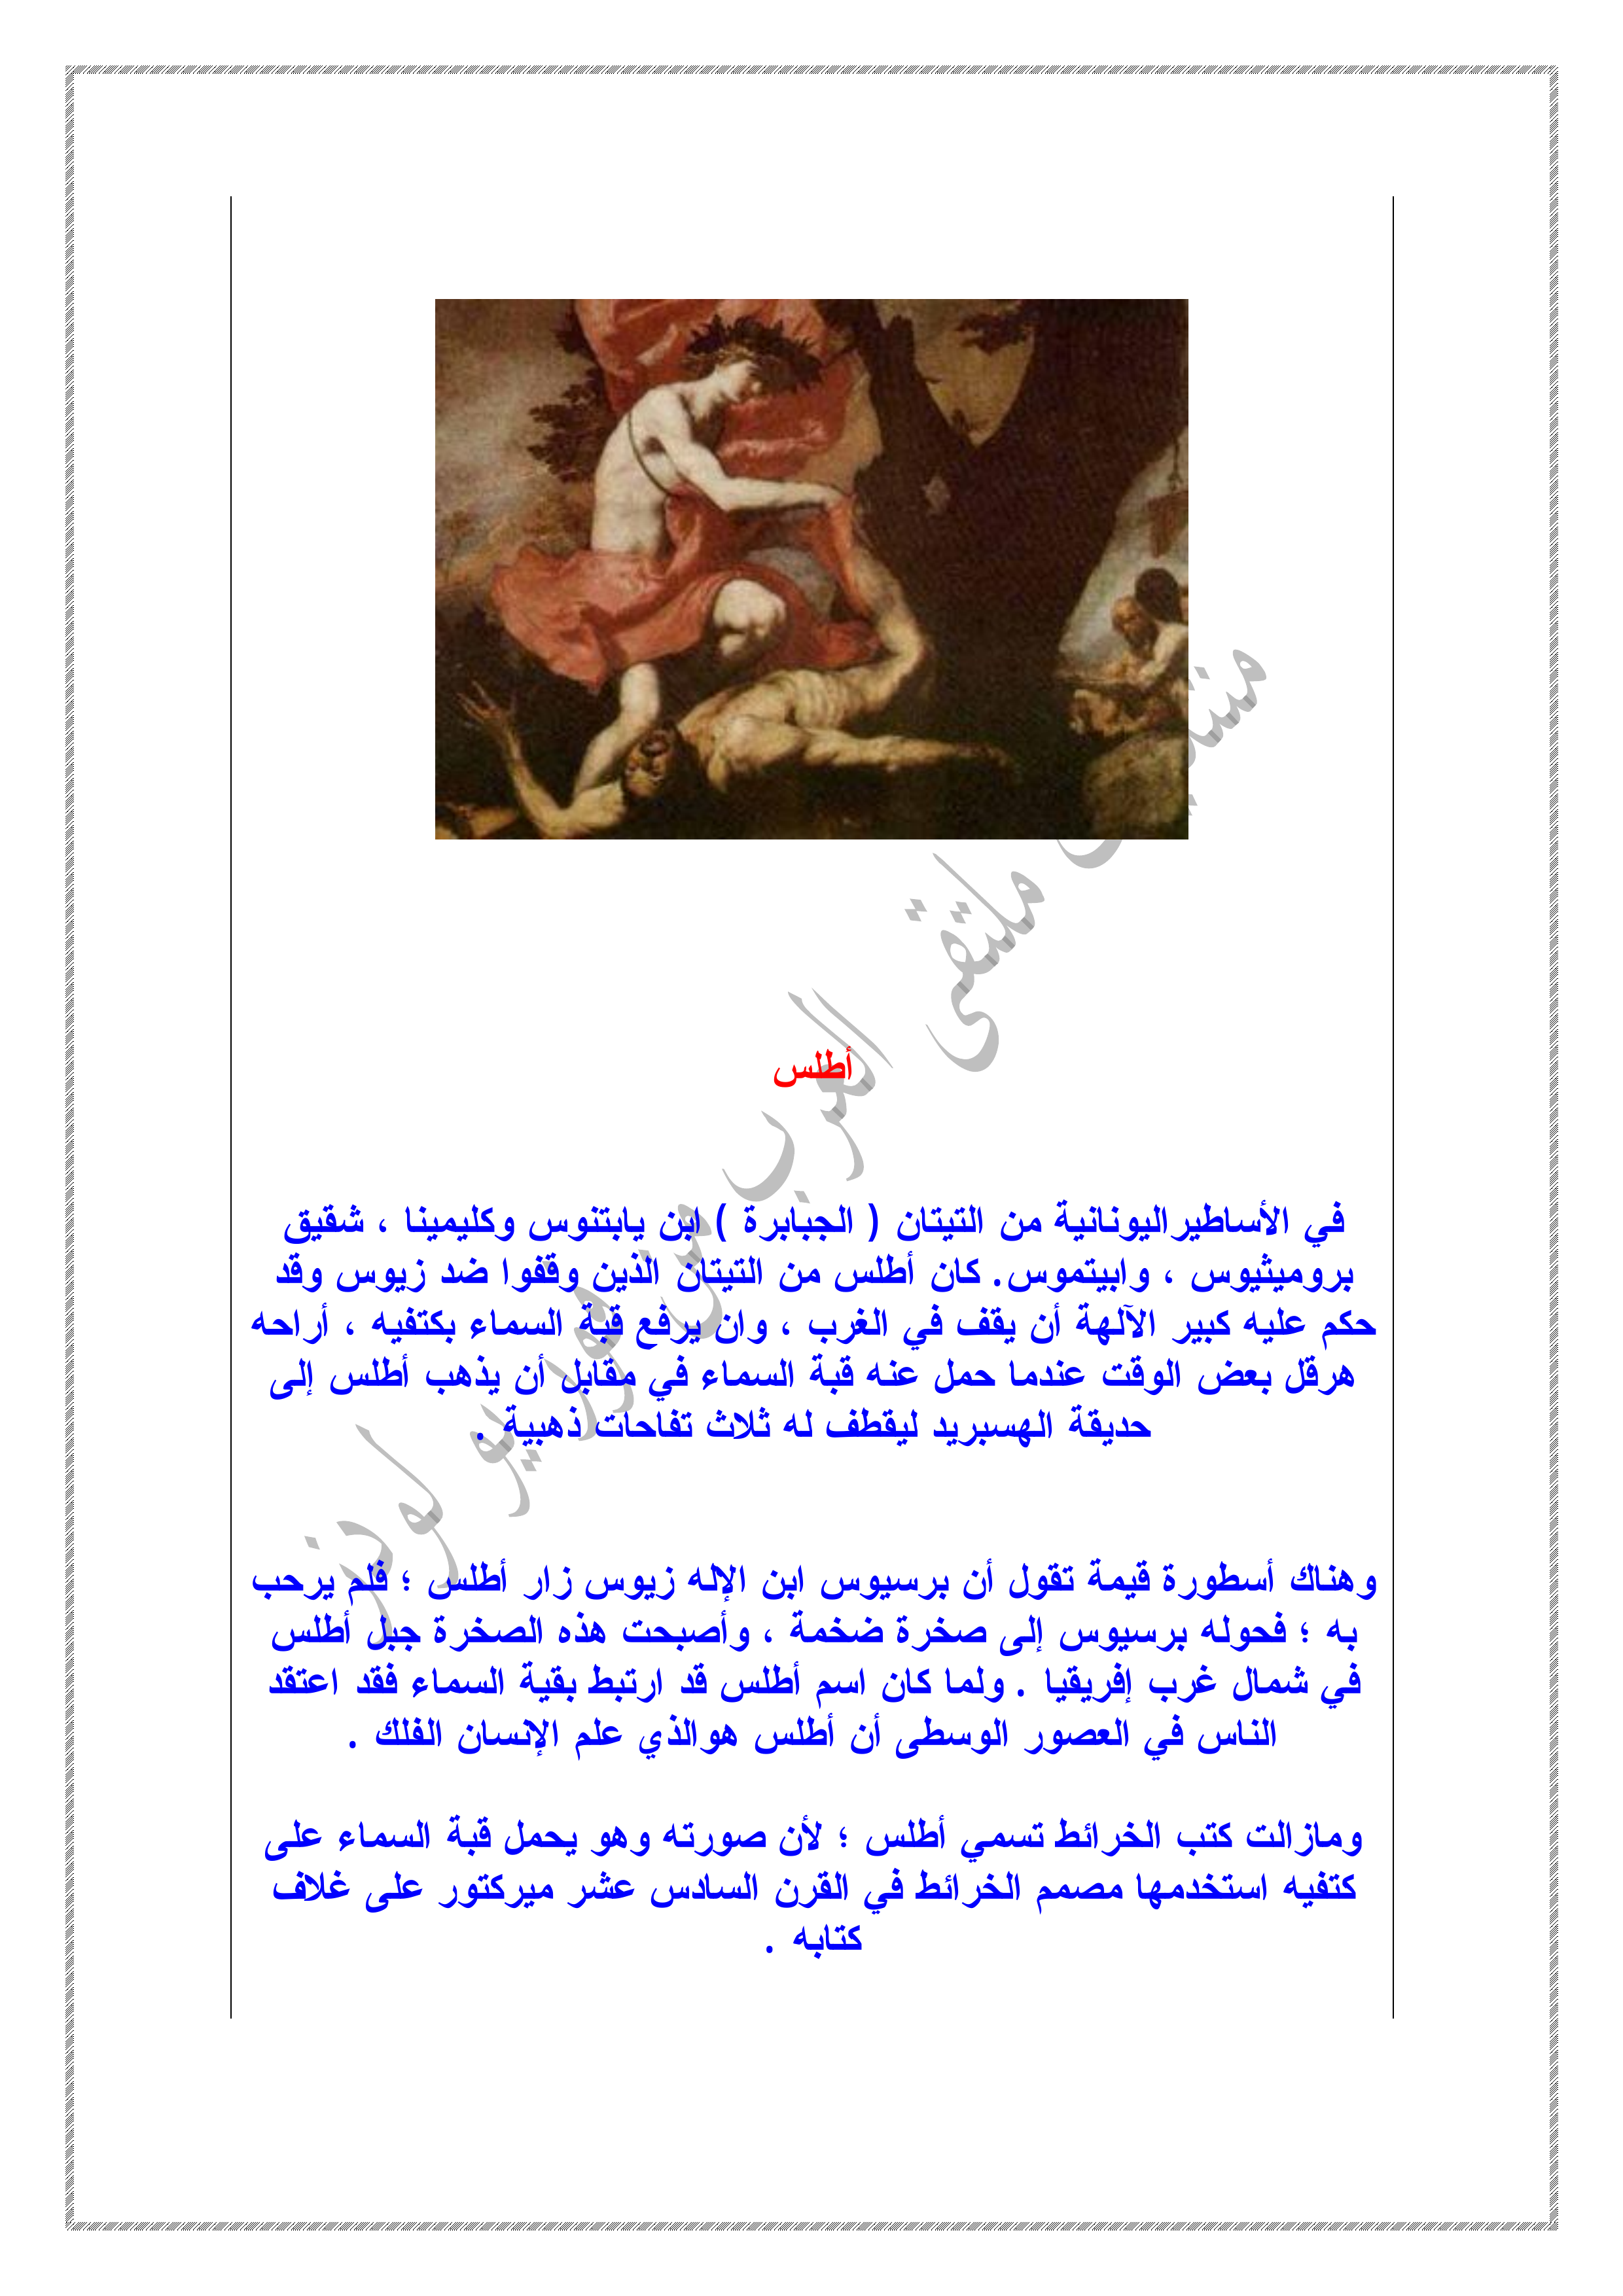 أطلس
في الأساطيراليونانية من التيتان ( الجبابرة ) ابن يابتنوس وكليمينا ، شقيق
بروميثيوس ، وابيتموس. كان أطلس من التيتان الذين وقفوا ضد زيوس وقد
حكم عليه كبير الآلهة أن يقف في الغرب ، وان يرفع قبة السماء بكتفيه ، أراحه
هرقل بعض الوقت عندما حمل عنه قبة السماء في مقابل أن يذهب أطلس إلى
حديقة الهسبريد ليقطف له ثلاث تفاحات ذهبية .
وهناك أسطورة قيمة تقول أن برسيوس ابن الإله زيوس زار أطلس ؛ فلم يرحب
به ؛ فحوله برسيوس إلى صخرة ضخمة ، وأصبحت هذه الصخرة جبل أطلس
في شمال غرب إفريقيا . ولما كان اسم أطلس قد ارتبط بقية السماء فقد اعتقد
الناس في العصور الوسطى أن أطلس هوالذي علم الإنسان الفلك .
ومازالت كتب الخرائط تسمي أطلس ؛ لأن صورته وهو يحمل قبة السماء على
كتفيه استخدمها مصمم الخرائط في القرن السادس عشر ميركتور على غلاف
كتابه .
ملتقى العرب من فور يو لوز